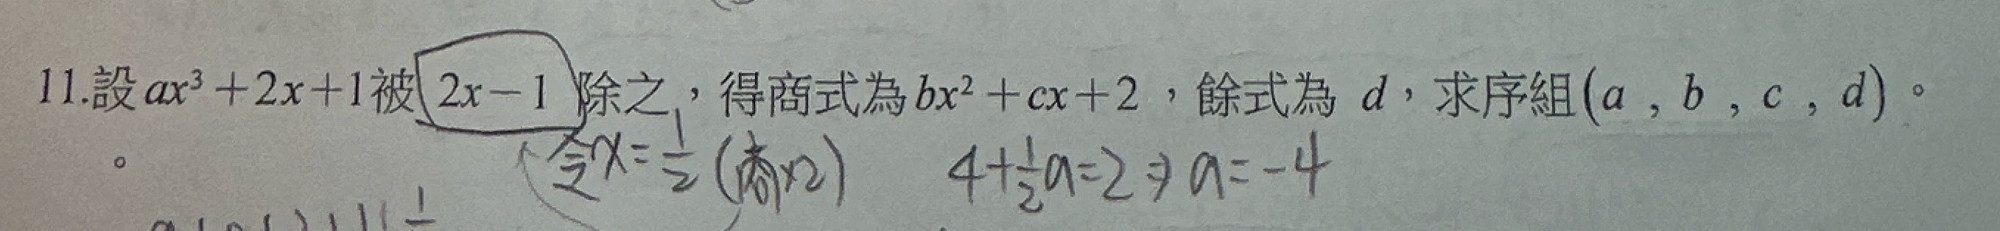 11.設ax³+2x+1被2x-1除之，得商式為bx²+cx+2，餘式為 d，求序組(a , b , c , d)。
。
令x=1/2 (商×2) 4+1/2a=2⇒a=-4